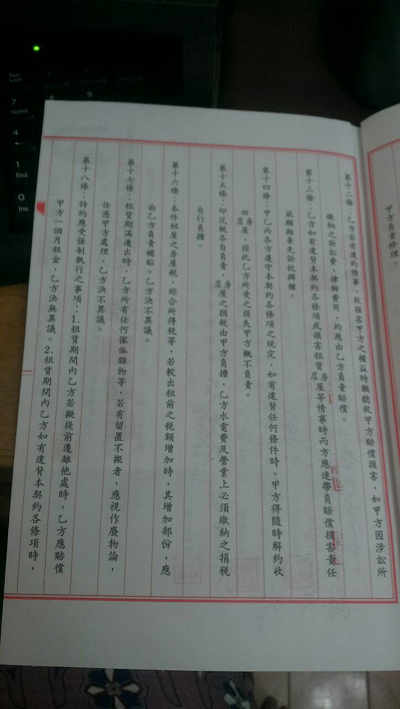 甲方負責修理。
第十二條:乙方若有違約情事,致損害甲方之權益時願聽從甲方賠償損害,如甲方因涉訟所
繳納之訴訟費、律師費用,均應由乙方負責賠償。
第十三條:乙方如有違背本契約各條項或損害租賃房店屋等情事時丙方應連帶負賠償損害責任
並願拋棄先訴抗辯權。
第十四條:甲乙丙各方遵守本契約各條項之規定,如有違背任何條件時,甲方得隨時解約收
回房店屋,因此乙方所受之損失甲方概不負責。
第十五條:印花稅各自負責,房店屋之捐稅由甲方負擔,乙方水電費及營業上必須繳納之捐稅
自行負擔。
第十六條:本件租屋之房屋稅、綜合所得稅等,若較出租前之稅額增加時,其增加部份,應
由乙方負責補貼。乙方決不異議。
第十七條:租賃期滿遷出時,乙方所有任何傢俬雜物等,若有留置不搬者,應視作廢物論,
任憑甲方處理,乙方決不異議。
第十八條:特約應受強制執行之事項:1.租賃期間內乙方若擬提前遷離他處時,乙方應賠償
甲方一個月租金,乙方決無異議。2.租賃期間內乙方如有違背本契約各條項時,